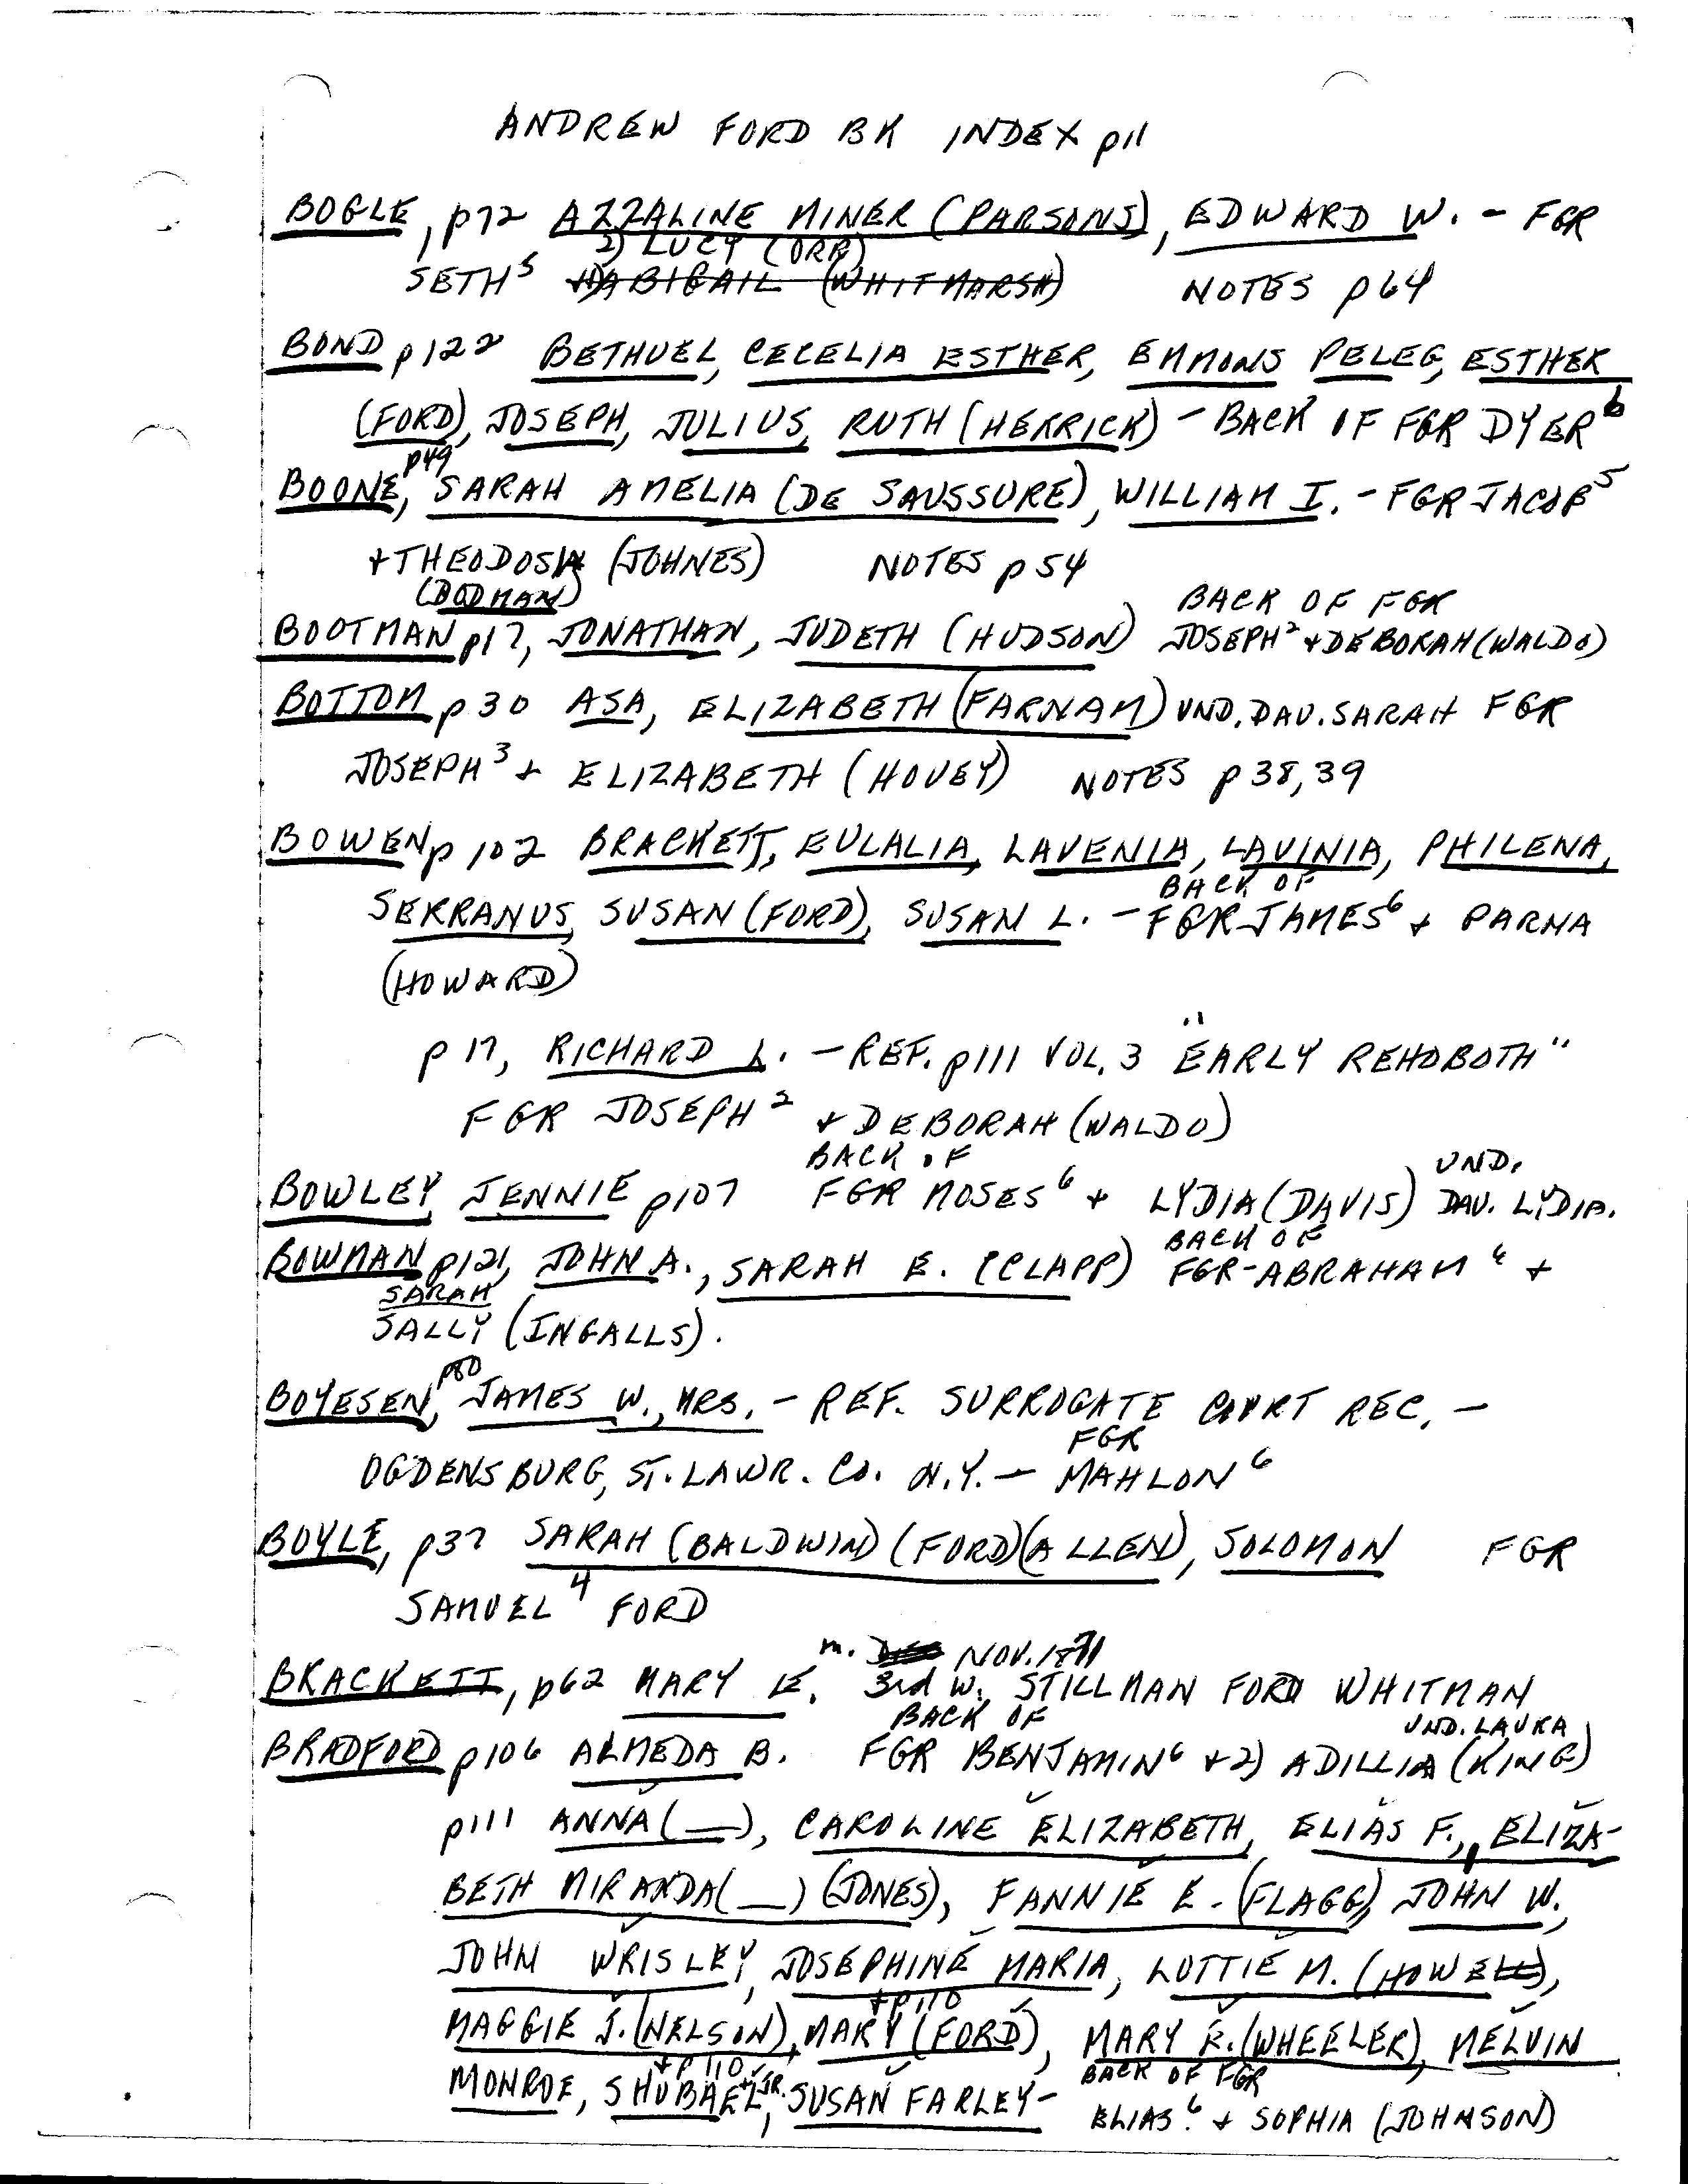 ANDREW FORD BK INDEX p11
BOGLE, p72 AZZALINE MINER (PARSONS), EDWARD W. - FGR
2) LUCY (ORR)
SETH5 1) ABIGAIL (WHITMARSH) NOTES p64
BOND p122 BETHUEL, CECELIA ESTHER, EMMONS PELEG, ESTHER
(FORD), JOSEPH, JULIUS, RUTH (HERRICK) - BACK OF FGR DYER6
p49
BOONE, SARAH AMELIA (DE SAUSSURE), WILLIAM I. - FGR JACOB5
+ THEODOSIA (JOHNES) NOTES p54
(BODMAN) BACK OF FGR
BOOTMAN p17, JONATHAN, JUDETH (HUDSON) JOSEPH2 + DEBORAH (WALDO)
BOTTOM p30 ASA, ELIZABETH (FARNAM) UND. DAU. SARAH FGR
JOSEPH3 + ELIZABETH (HOVEY) NOTES p38, 39
BOWEN p102 BRACKETT, EULALIA, LAVENIA, LAVINIA, PHILENA,
BACK OF
SERRANUS, SUSAN (FORD), SUSAN L. - FGR JAMES6 + PARNA
(HOWARD)
p17, RICHARD L. - REF. p111 VOL. 3 "EARLY REHOBOTH"
FGR JOSEPH2 + DEBORAH (WALDO)
BACK OF UND.
BOWLEY, JENNIE p107 FGR MOSES6 + LYDIA (DAVIS) DAU. LYDIA.
BACK OF
BOWMAN p121, JOHN A., SARAH E. (CLAPP) FGR - ABRAHAM6 +
SARAH
SALLY (INGALLS).
p80
BOYESEN, JAMES W., MRS. - REF. SURROGATE COURT REC. -
FGR
OGDENSBURG, ST. LAWR. CO. N.Y. - MAHLON6
BOYLE, p37 SARAH (BALDWIN) (FORD) (ALLEN), SOLOMON FGR
SAMUEL4 FORD
m. NOV. 1871
BRACKETT, p62 MARY E. 3rd W. STILLMAN FORD WHITMAN
BACK OF UND. LAURA
BRADFORD p106 ALMEDA B. FGR BENJAMIN6 + 2) ADILLIA (KING)
p111 ANNA (__), CAROLINE ELIZABETH, ELIAS F., ELIZA-
BETH MIRANDA (__) (JONES), FANNIE E. (FLAGG), JOHN W.,
JOHN WRISLEY, JOSEPHINE MARIA, LOTTIE M. (HOWELL),
+ p110
MAGGIE J. (NELSON), MARY (FORD), MARY E. (WHEELER), MELVIN
+ p110 + JR. BACK OF FGR
MONROE, SHUBAEL, SUSAN FARLEY - ELIAS6 + SOPHIA (JOHNSON)